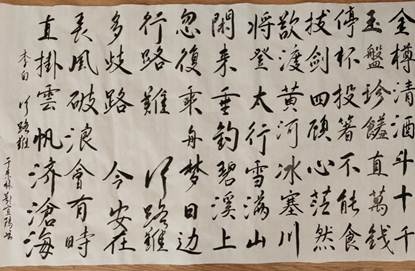 金樽清酒斗十千
玉盤珍饈直萬錢
停杯投箸不能食
拔劍四顧心茫然
欲渡黄河冰塞川
將登太行雪滿山
閑来垂釣碧溪上
忽復乘舟梦日边
行路難 行路難
多歧路 今安在
長風破浪會有時
直掛雲帆济滄海
李白 行路難